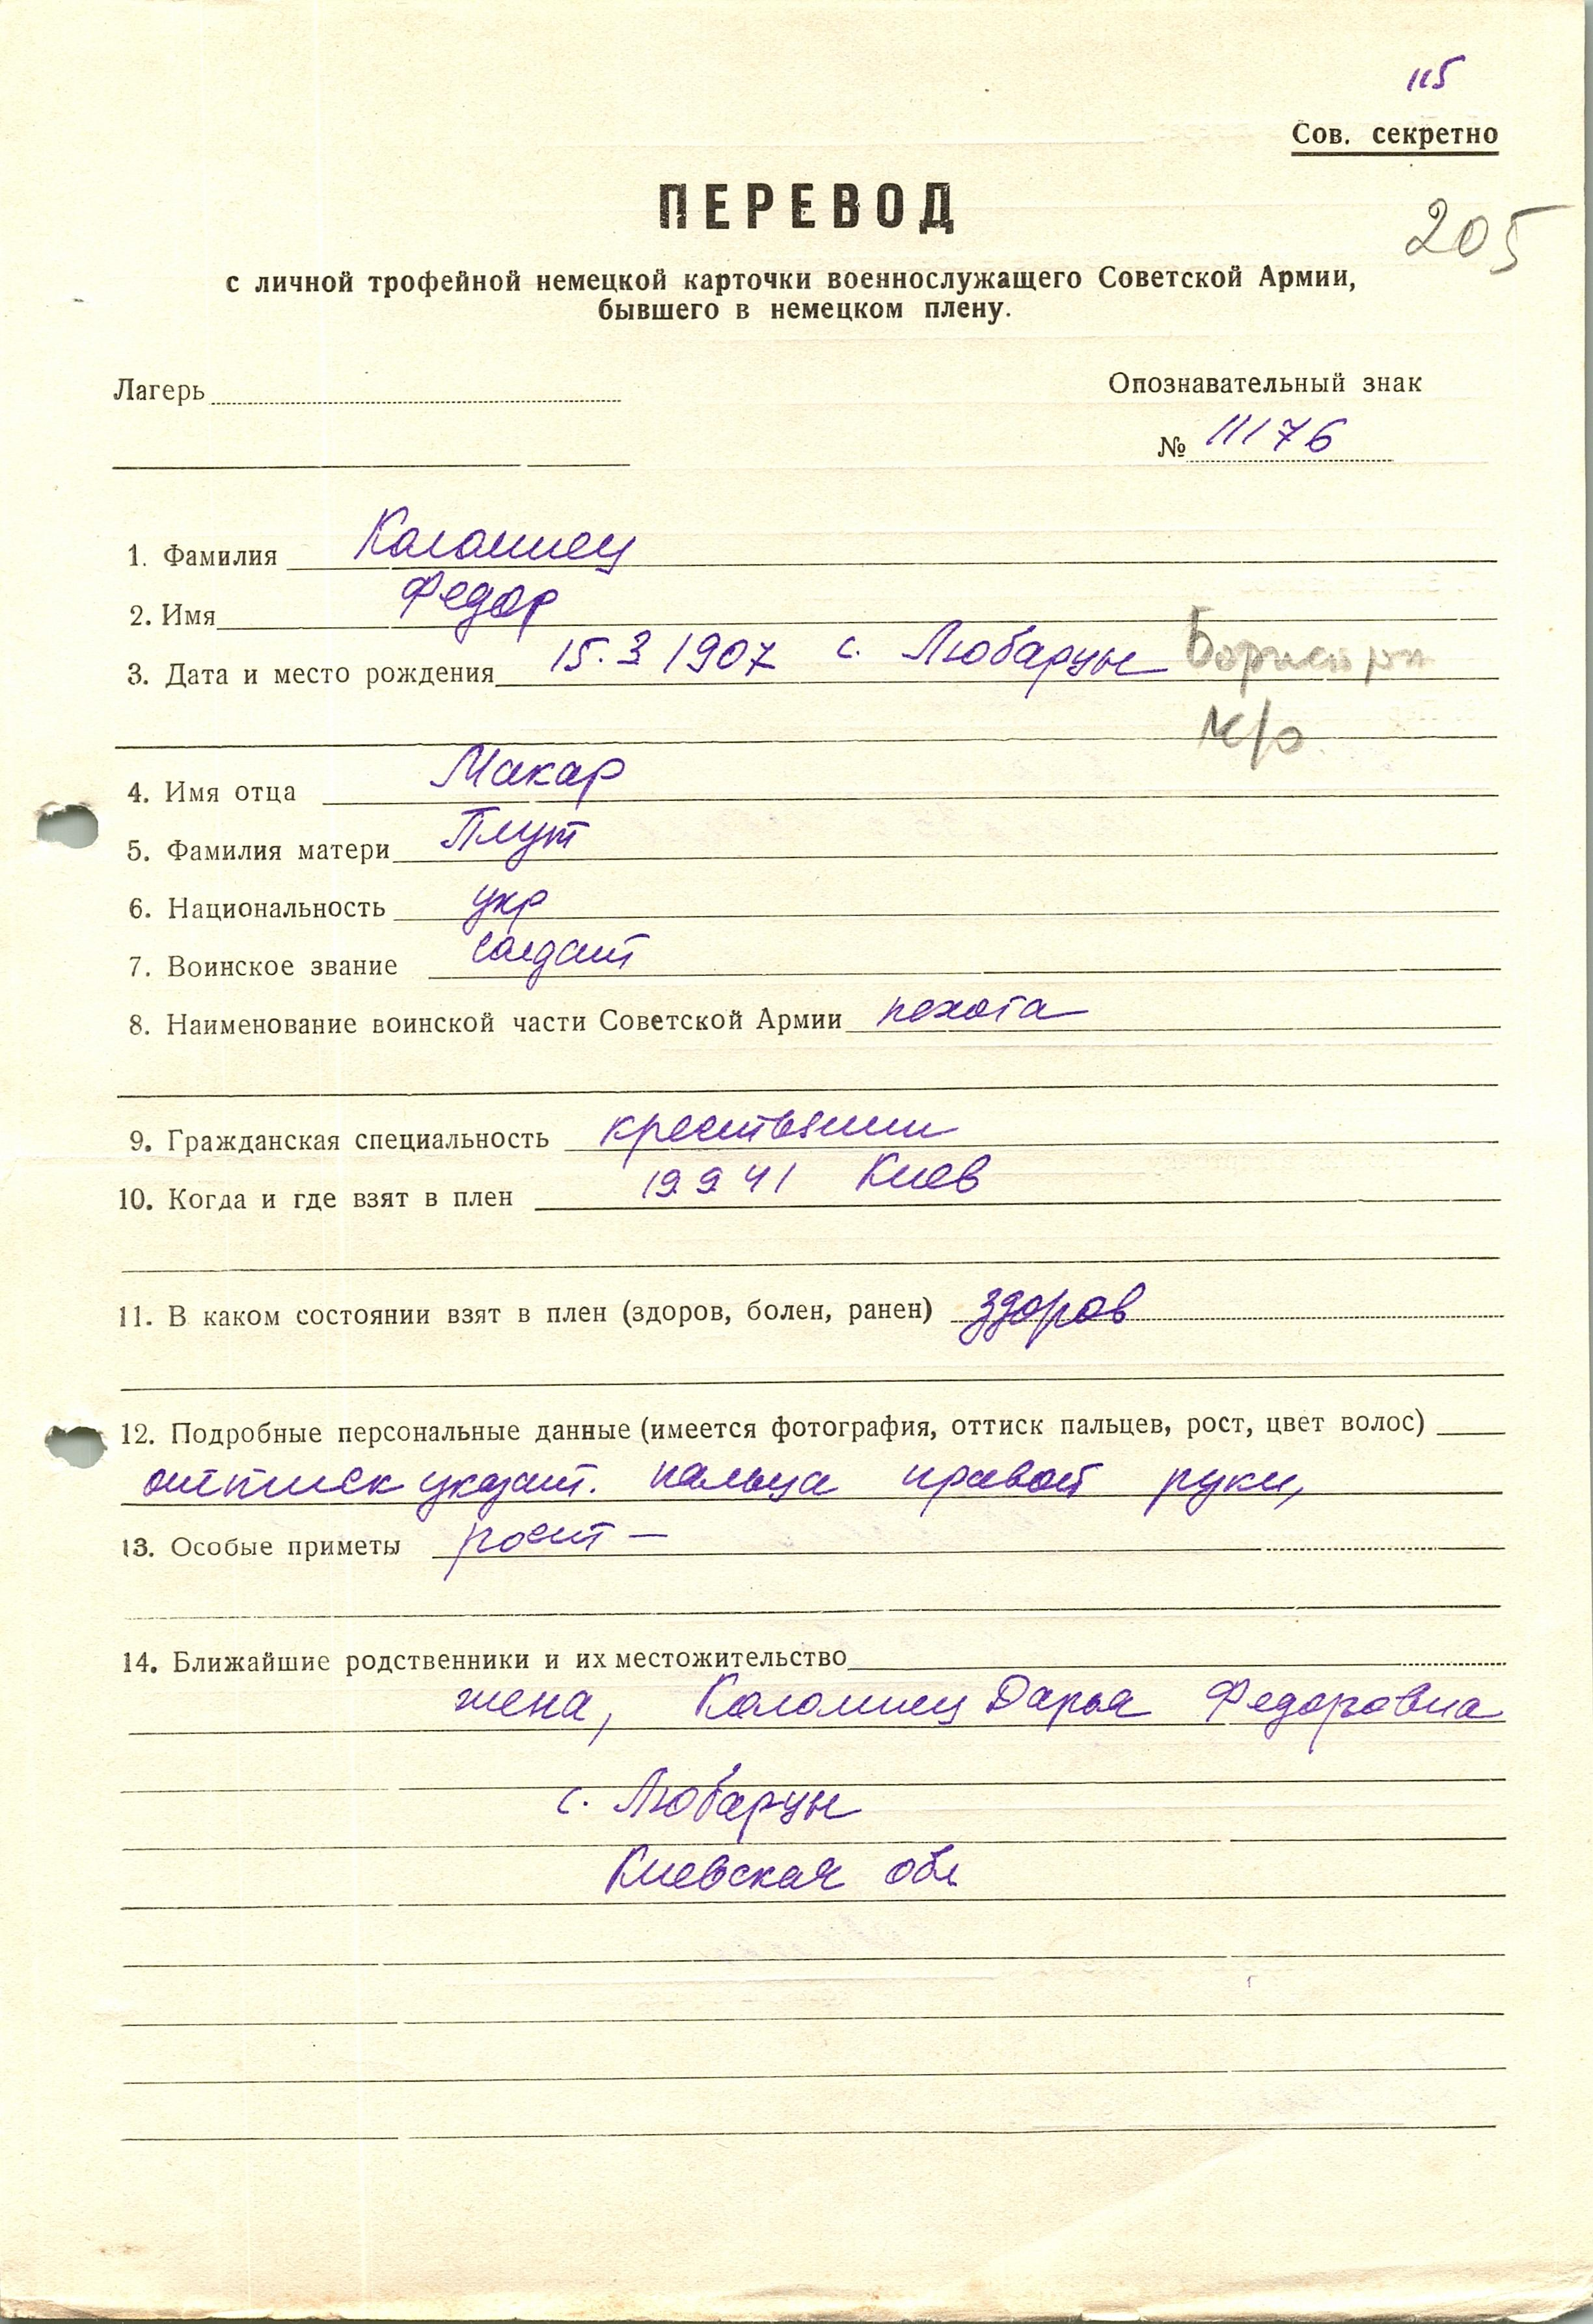 115
Сов. секретно
ПЕРЕВОД
205
с личной трофейной немецкой карточки военнослужащего Советской Армии,
бывшего в немецком плену.
Лагерь
Опознавательный знак
№ 11176
1. Фамилия Коломиец
2. Имя Федор
3. Дата и место рождения 15.3 1907 с. Любарцы
К/о
4. Имя отца Макар
5. Фамилия матери Плут
6. Национальность укр
7. Воинское звание солдат
8. Наименование воинской части Советской Армии пехота
9. Гражданская специальность крестьянин
10. Когда и где взят в плен 19 9 41 Киев
11. В каком состоянии взят в плен (здоров, болен, ранен) здоров
12. Подробные персональные данные (имеется фотография, оттиск пальцев, рост, цвет волос)
оттиск указат. пальца правой руки,
13. Особые приметы рост —
14. Ближайшие родственники и их местожительство
жена, Коломиец Дарья Федоровна
с. Любарцы
Киевская обл